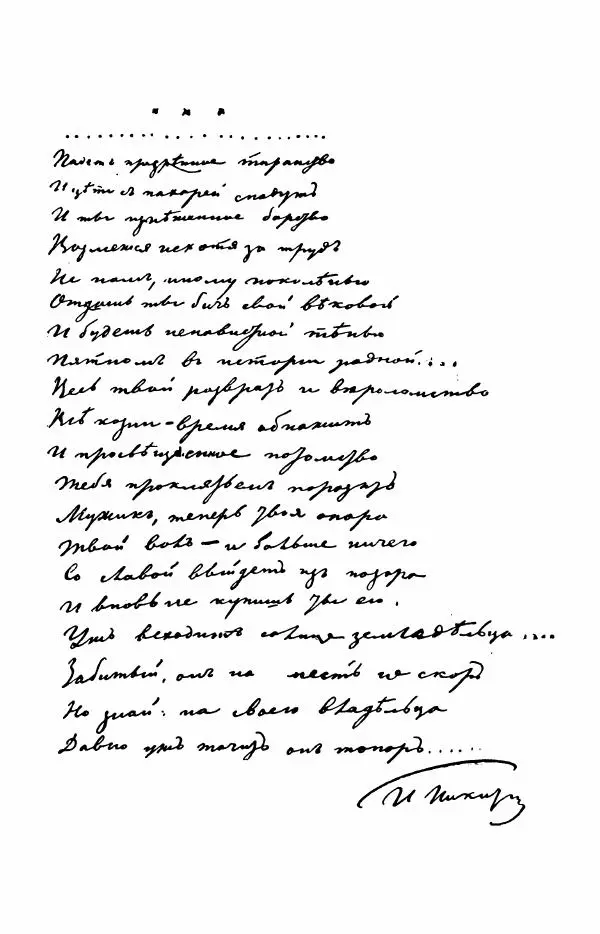 * * *
............................
Падетъ презрѣнное тиранство
И цѣпи съ пахарей спадутъ
И ты изнѣженное барство
Возмешся нехотя за трудъ
Не намъ, иному поколѣнью
Отдашь ты бичъ свой вѣковой
И будешь ненавистной тѣнью
Пятномъ въ исторіи родной....
Весь твой развратъ и вѣроломство
Всѣ козни – время обнажитъ
И просвѣщенное потомство
Тебя проклятьемъ поразитъ
Мужикъ, теперь твоя опора
Твой волъ – и больше ничего
Со славой выйдетъ изъ позора
И вновь не купишь ты его.
Ужъ всходитъ солнце земледѣльца ....
Забитый, онъ на месть не скоръ
Но знай: на своего владѣльца
Давно ужъ точитъ онъ топоръ......
И Никит